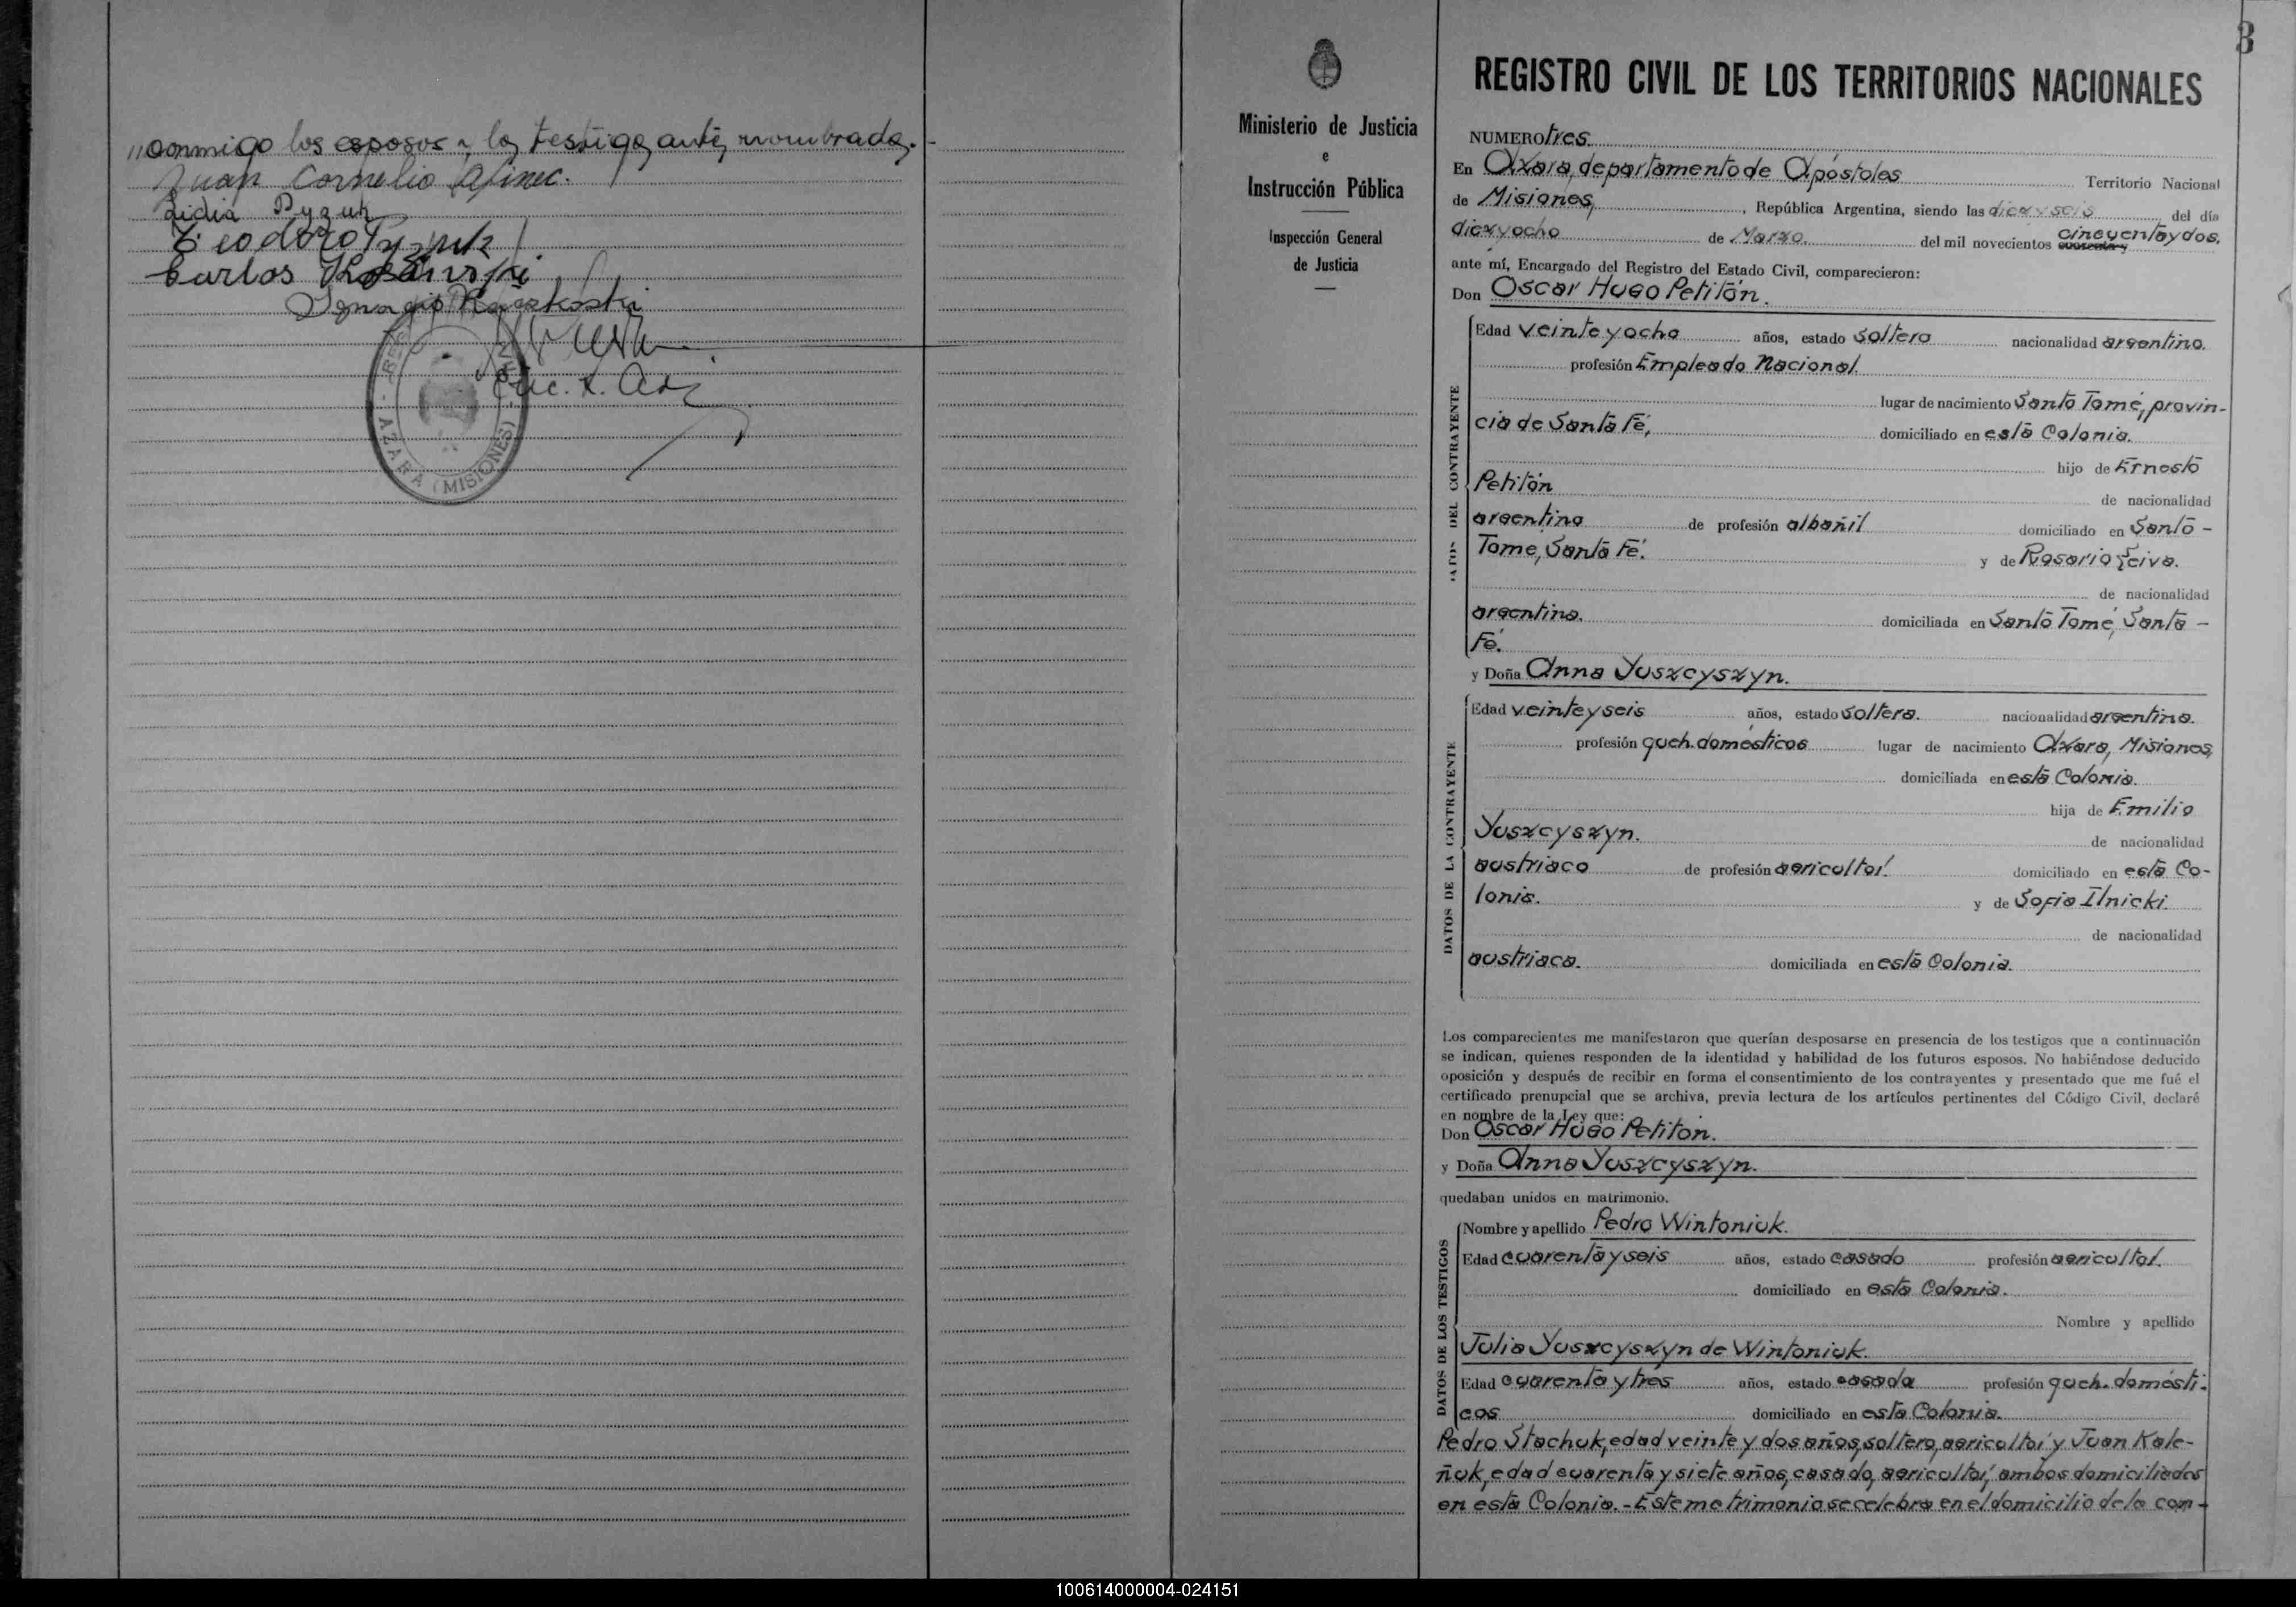 "conmigo los esposos y los testigos antes nombrados.-
Juan Cornelio
Lidia Pyzuk
Teodoro Pyzuk
Carlos
Ignacio
AZARA (MISIONES)
Ministerio de Justicia
e
Instrucción Pública
Inspección General
de Justicia
3
REGISTRO CIVIL DE LOS TERRITORIOS NACIONALES
NUMERO tres.
En Azara, departamento de Apóstoles Territorio Nacional
de Misiones, República Argentina, siendo las diez y seis del día
diez y ocho de Marzo del mil novecientos cuarenta y cincuenta y dos,
ante mí, Encargado del Registro del Estado Civil, comparecieron:
Don Oscar Hugo Petitón.
DATOS DEL CONTRAYENTE
Edad veinte y ocho años, estado soltero nacionalidad argentina.
profesión Empleado Nacional.
lugar de nacimiento Santo Tomé, provin-
cia de Santa Fé, domiciliado en esta Colonia.
hijo de Ernesto
Petitón de nacionalidad
argentina de profesión albañil domiciliado en Santo-
Tome, Santa Fé. y de Rosario Leiva.
de nacionalidad
argentina. domiciliada en Santo Tomé, Santa-
Fé.
y Doña Anna Yuszcyszyn.
DATOS DE LA CONTRAYENTE
Edad veinte y seis años, estado soltera. nacionalidad argentina.
profesión queh. domésticos lugar de nacimiento Azara, Misiones,
domiciliada en esta Colonia.
hija de Emilio
Yuszcyszyn. de nacionalidad
austriaco de profesión agricultor. domiciliado en esta Co-
lonia. y de Sofia Ilnicki.
de nacionalidad
austriaca. domiciliada en esta Colonia.
Los comparecientes me manifestaron que querían desposarse en presencia de los testigos que a continuación
se indican, quienes responden de la identidad y habilidad de los futuros esposos. No habiéndose deducido
oposición y después de recibir en forma el consentimiento de los contrayentes y presentado que me fué el
certificado prenupcial que se archiva, previa lectura de los artículos pertinentes del Código Civil, declaré
en nombre de la Ley que:
Don Oscar Hugo Petiton.
y Doña Anna Yuszcyszyn.
quedaban unidos en matrimonio.
DATOS DE LOS TESTIGOS
Nombre y apellido Pedro Wintoniuk.
Edad cuarenta y seis años, estado casado profesión agricultor.
domiciliado en esta Colonia.
Nombre y apellido
Julia Yuszcyszyn de Wintoniuk.
Edad cuarenta y tres años, estado casada profesión queh. domésti-
cos domiciliado en esta Colonia.
Pedro Stachuk, edad veinte y dos años, soltero, agricultor y Juan Kale-
ñuk, edad cuarenta y siete años, casado, agricultor, ambos domiciliados
en esta Colonia.-Este matrimonio se celebra en el domicilio de la con-
100614000004-024151